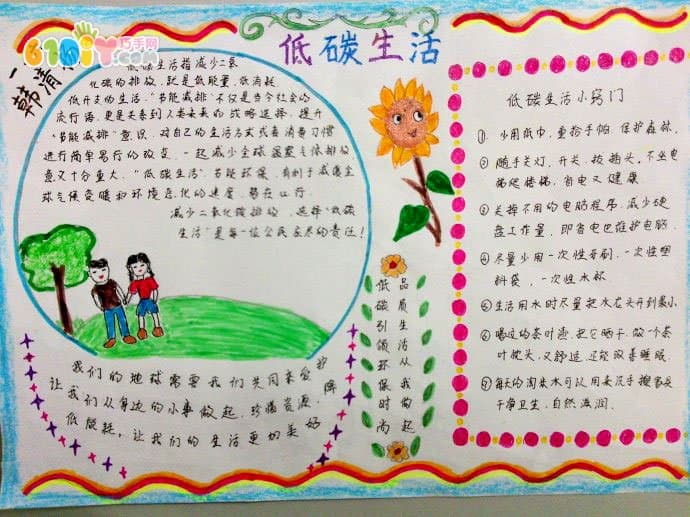 61DIY巧手网
韩
低碳生活
低碳生活指减少二氧
化碳的排放，就是低能量，低消耗，
低开支的生活，"节能减排"不仅是当今社会的
流行语，更是关系到人类未来的战略选择，提升
"节能减排"意识，对自己的生活方式或者消费习惯
进行简单易行的改变，一起减少全球温室气体排放
意义十分重大，"低碳生活"节能环保，有利于减缓全
球气候变暖和环境恶化的速度，势在必行，
减少二氧化碳排放，选择"低碳
生活"是每一位公民应尽的责任！
我们的地球需要我们共同来爱护
让我们从身边的小事做起，珍惜资源，降
低能耗，让我们的生活更加美好
低碳别领环保时尚
品质生活从我做起
低碳生活小窍门
① 少用纸巾，重拾手帕，保护森林，
② 随手关灯，开关，拔插头，不坐电
梯爬楼梯，省电又健康
③ 关掉不用的电脑程序，减少硬
盘工作量，即省电也维护电脑，
④ 尽量少用一次性牙刷，一次性塑
料袋，一次性水杯
⑤ 生活用水时尽量把水龙头开到最小，
⑥ 喝过的茶叶渣，把它晒干，做一个茶
叶枕头，又舒适，还能改善睡眠，
⑦ 每天的淘米水可以用来洗手擦家具
干净卫生，自然滋润，